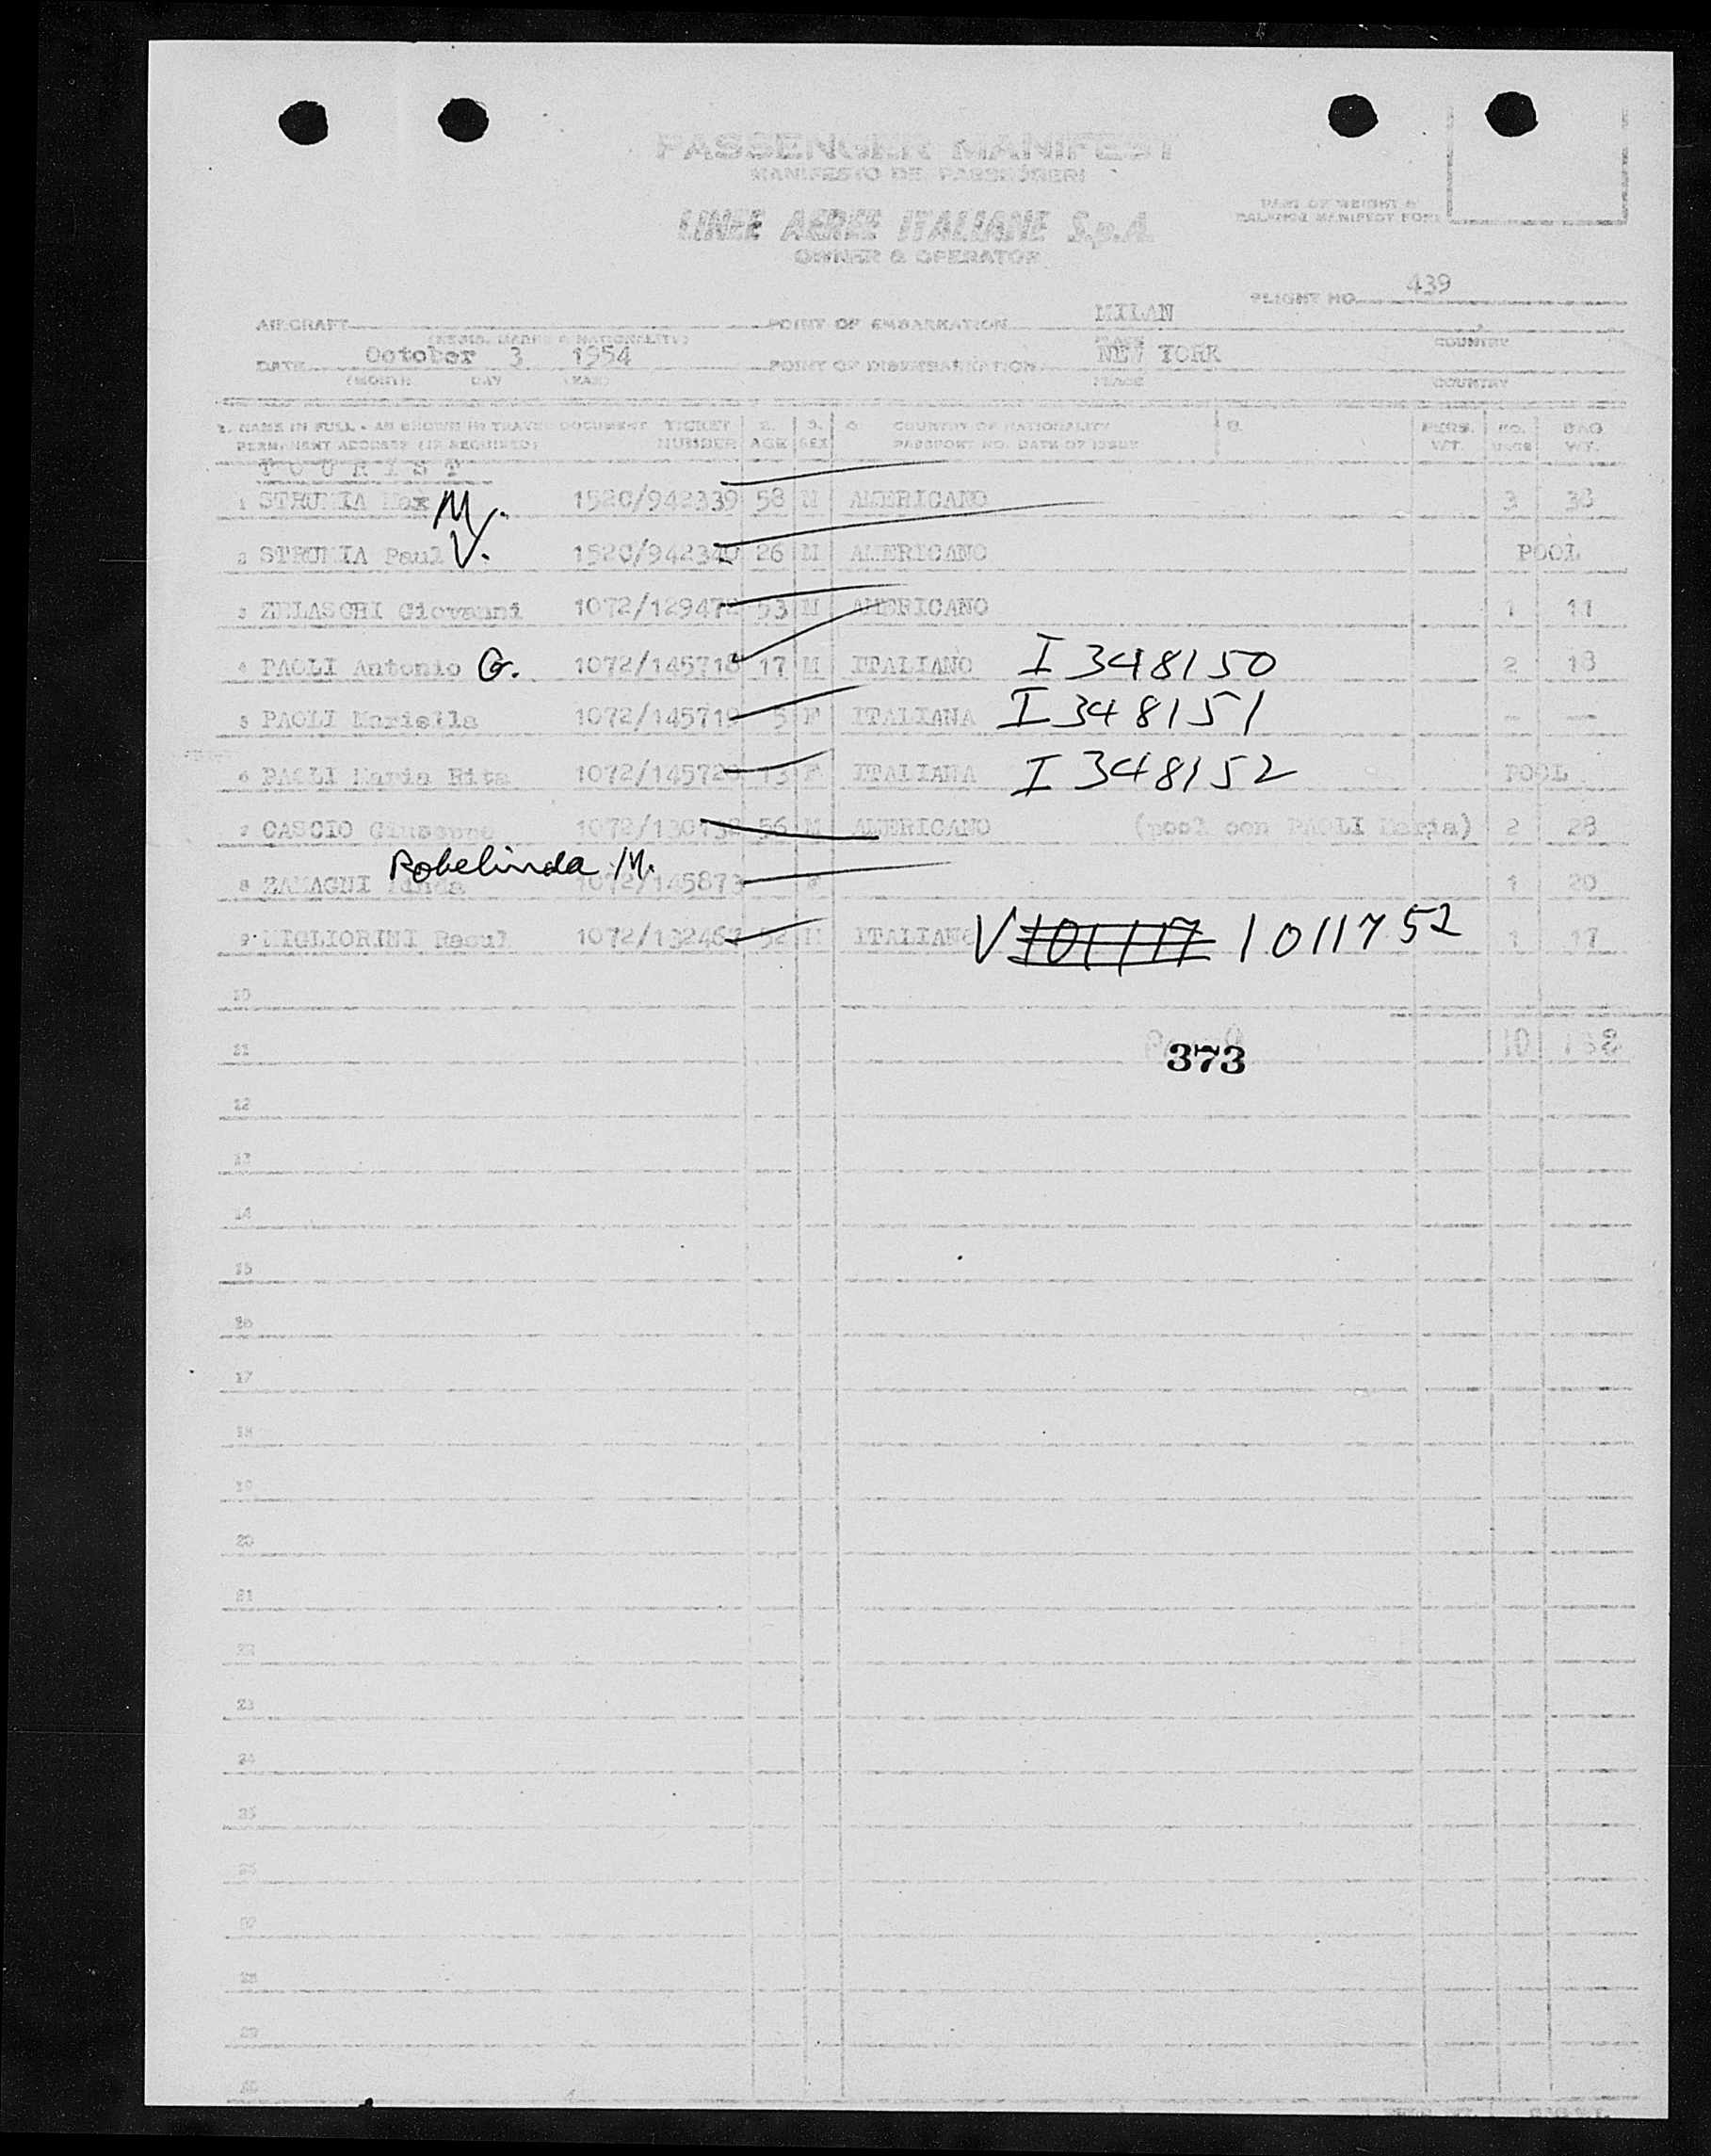 PASSENGER MANIFEST
MANIFESTO DEI PASSEGGERI
LINEE AEREE ITALIANE S.p.A.
OWNER & OPERATOR
PART OF WEIGHT &
BALANCE MANIFEST FORM
FLIGHT NO. 439
AIRCRAFT POINT OF EMBARKATION MILAN
(REGIS. MARKS & NATIONALITY) PLACE COUNTRY
DATE October 3 1954 POINT OF DISEMBARKATION NEW YORK
(MONTH DAY YEAR) PLACE COUNTRY
1. NAME IN FULL - AS SHOWN IN TRAVEL DOCUMENT TICKET 2. 3. 4. COUNTRY OF NATIONALITY 5. PERS. NO. BAG
PERMANENT ADDRESS (IF REQUIRED) NUMBER AGE SEX PASSPORT NO. DATE OF ISSUE WT. WT.
T O U R I S T
1 STRUMIA Max M. 1520/942339 58 M AMERICANO 3 38
2 STRUMIA Paul V. 1520/942340 26 M AMERICANO POOL
3 ZELASCHI Giovanni 1072/129478 53 M AMERICANO 1 11
4 PAOLI Antonio G. 1072/145718 17 M ITALIANO I 348150 2 18
5 PAOLI Mariella 1072/145719 5 F ITALIANA I 348151 - --
6 PAOLI Maria Rita 1072/145720 13 F ITALIANA I 348152 POOL
7 CASCIO Giuseppe 1072/130738 56 M AMERICANO (pool con PAOLI Maria) 2 28
Robelinda M.
8 ZAMAGNI Linda 1072/145873 F 1 20
9 MIGLIORINI Raoul 1072/132467 52 M ITALIANO V 101117 1011752 1 17
10
11 373 10
12
13
14
15
16
17
18
19
20
21
22
23
24
25
26
27
28
29
30